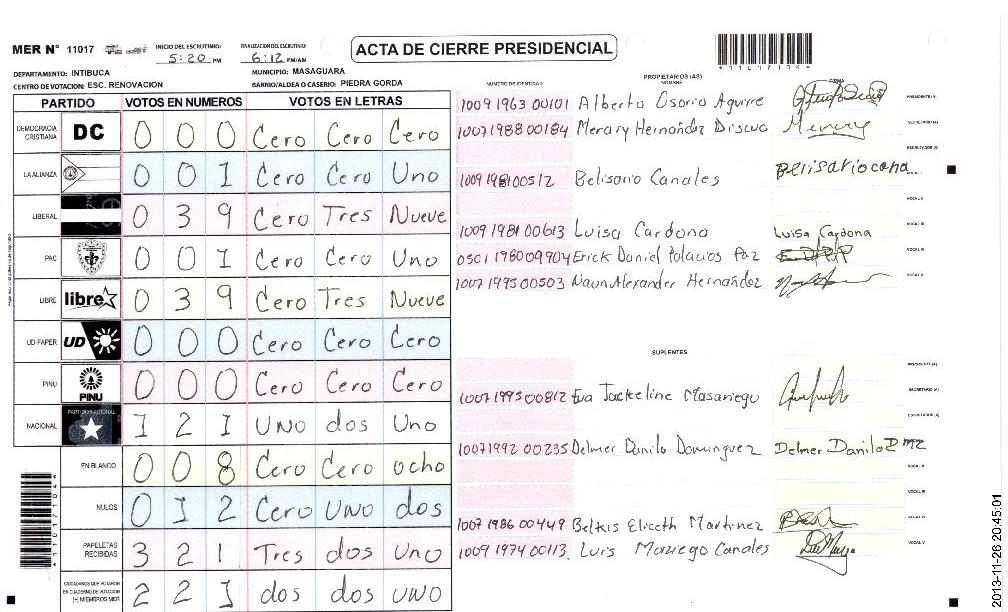 MER N° 11017
INICIO DEL ESCRUTINIO: 5:20 PM
FINALIZACION DEL ESCRUTINIO: 6:12 PM/AM
ACTA DE CIERRE PRESIDENCIAL
DEPARTAMENTO: INTIBUCA
MUNICIPIO: MASAGUARA
CENTRO DE VOTACION: ESC. RENOVACION
BARRIO/ALDEA O CASERIO: PIEDRA GORDA
PARTIDO VOTOS EN NUMEROS VOTOS EN LETRAS
DEMOCRACIA CRISTIANA DC 0 0 0 Cero Cero Cero
LA ALIANZA 0 0 1 Cero Cero Uno
LIBERAL 0 3 9 Cero Tres Nueve
PAC 0 0 1 Cero Cero Uno
LIBRE libre 0 3 9 Cero Tres Nueve
UD-FAPER UD 0 0 0 Cero Cero Cero
PINU PINU 0 0 0 Cero Cero Cero
NACIONAL PARTIDO NACIONAL 1 2 1 UNO dos Uno
EN BLANCO 0 0 8 Cero Cero ocho
NULOS 0 1 2 Cero UNO dos
PAPELETAS RECIBIDAS 3 2 1 Tres dos Uno
CIUDADANOS QUE VOTARON EN CUADERNO DE VOTACION (-) MIEMBROS MER 2 2 1 dos dos UNO
PROPIETARIOS (AS)
NUMERO DE IDENTIDAD NOMBRE FIRMA
1009 1963 00101 Alberto Osorio Aguirre PRESIDENTE(A)
1007 1988 00184 Merary Hernández Discua Merary SECRETARIO(A)
ESCRUTADOR(A)
1009 1981 00512 Belisario Canales Belisario cana
VOCAL II
1009 1981 00613 Luisa Cardona Luisa Cardona VOCAL III
0501 1980 09904 Erick Daniel Palacios Paz EDPP VOCAL IV
1007 1995 00503 Naun Alexander Hernández VOCAL V
SUPLENTES
PRESIDENTE (A)
1007 1995 00812 Eva Jackeline Masariego SECRETARIO(A)
ESCRUTADOR (A)
1007 1992 00235 Delmer Danilo Dominguez Delmer Danilo D mz
VOCAL II
VOCAL III
1007 1986 00449 Belkis Eliceth Martinez VOCAL IV
1009 1974 00113. Luis Maziego Canales VOCAL V
1101710 4
2013-11-26 20:45:01